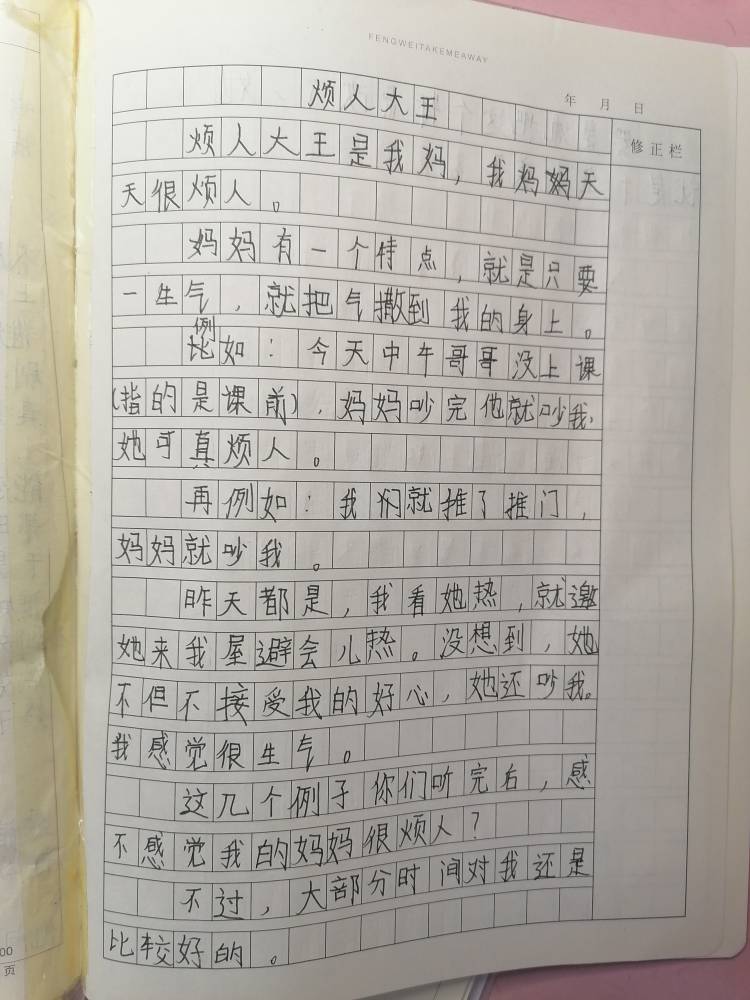 FENGWEITAKEMEAWAY
年 月 日
修正栏
烦人大王
烦人大王是我妈，我妈妈天
天很烦人。
妈妈有一个特点，就是只要
一生气，就把气撒到我的身上。
例
比如：今天中午哥哥没上课
(指的是课前)，妈妈吵完他就吵我，
她可真烦人。
再例如：我们就推了推门，
妈妈就吵我。
昨天都是，我看她热，就邀
她来我屋避会儿热。没想到，她
不但不接受我的好心，她还吵我。
我感觉很生气。
这几个例子你们听完后，感
不感觉我的妈妈很烦人？
不过，大部分时间对我还是
比较好的。
00
页